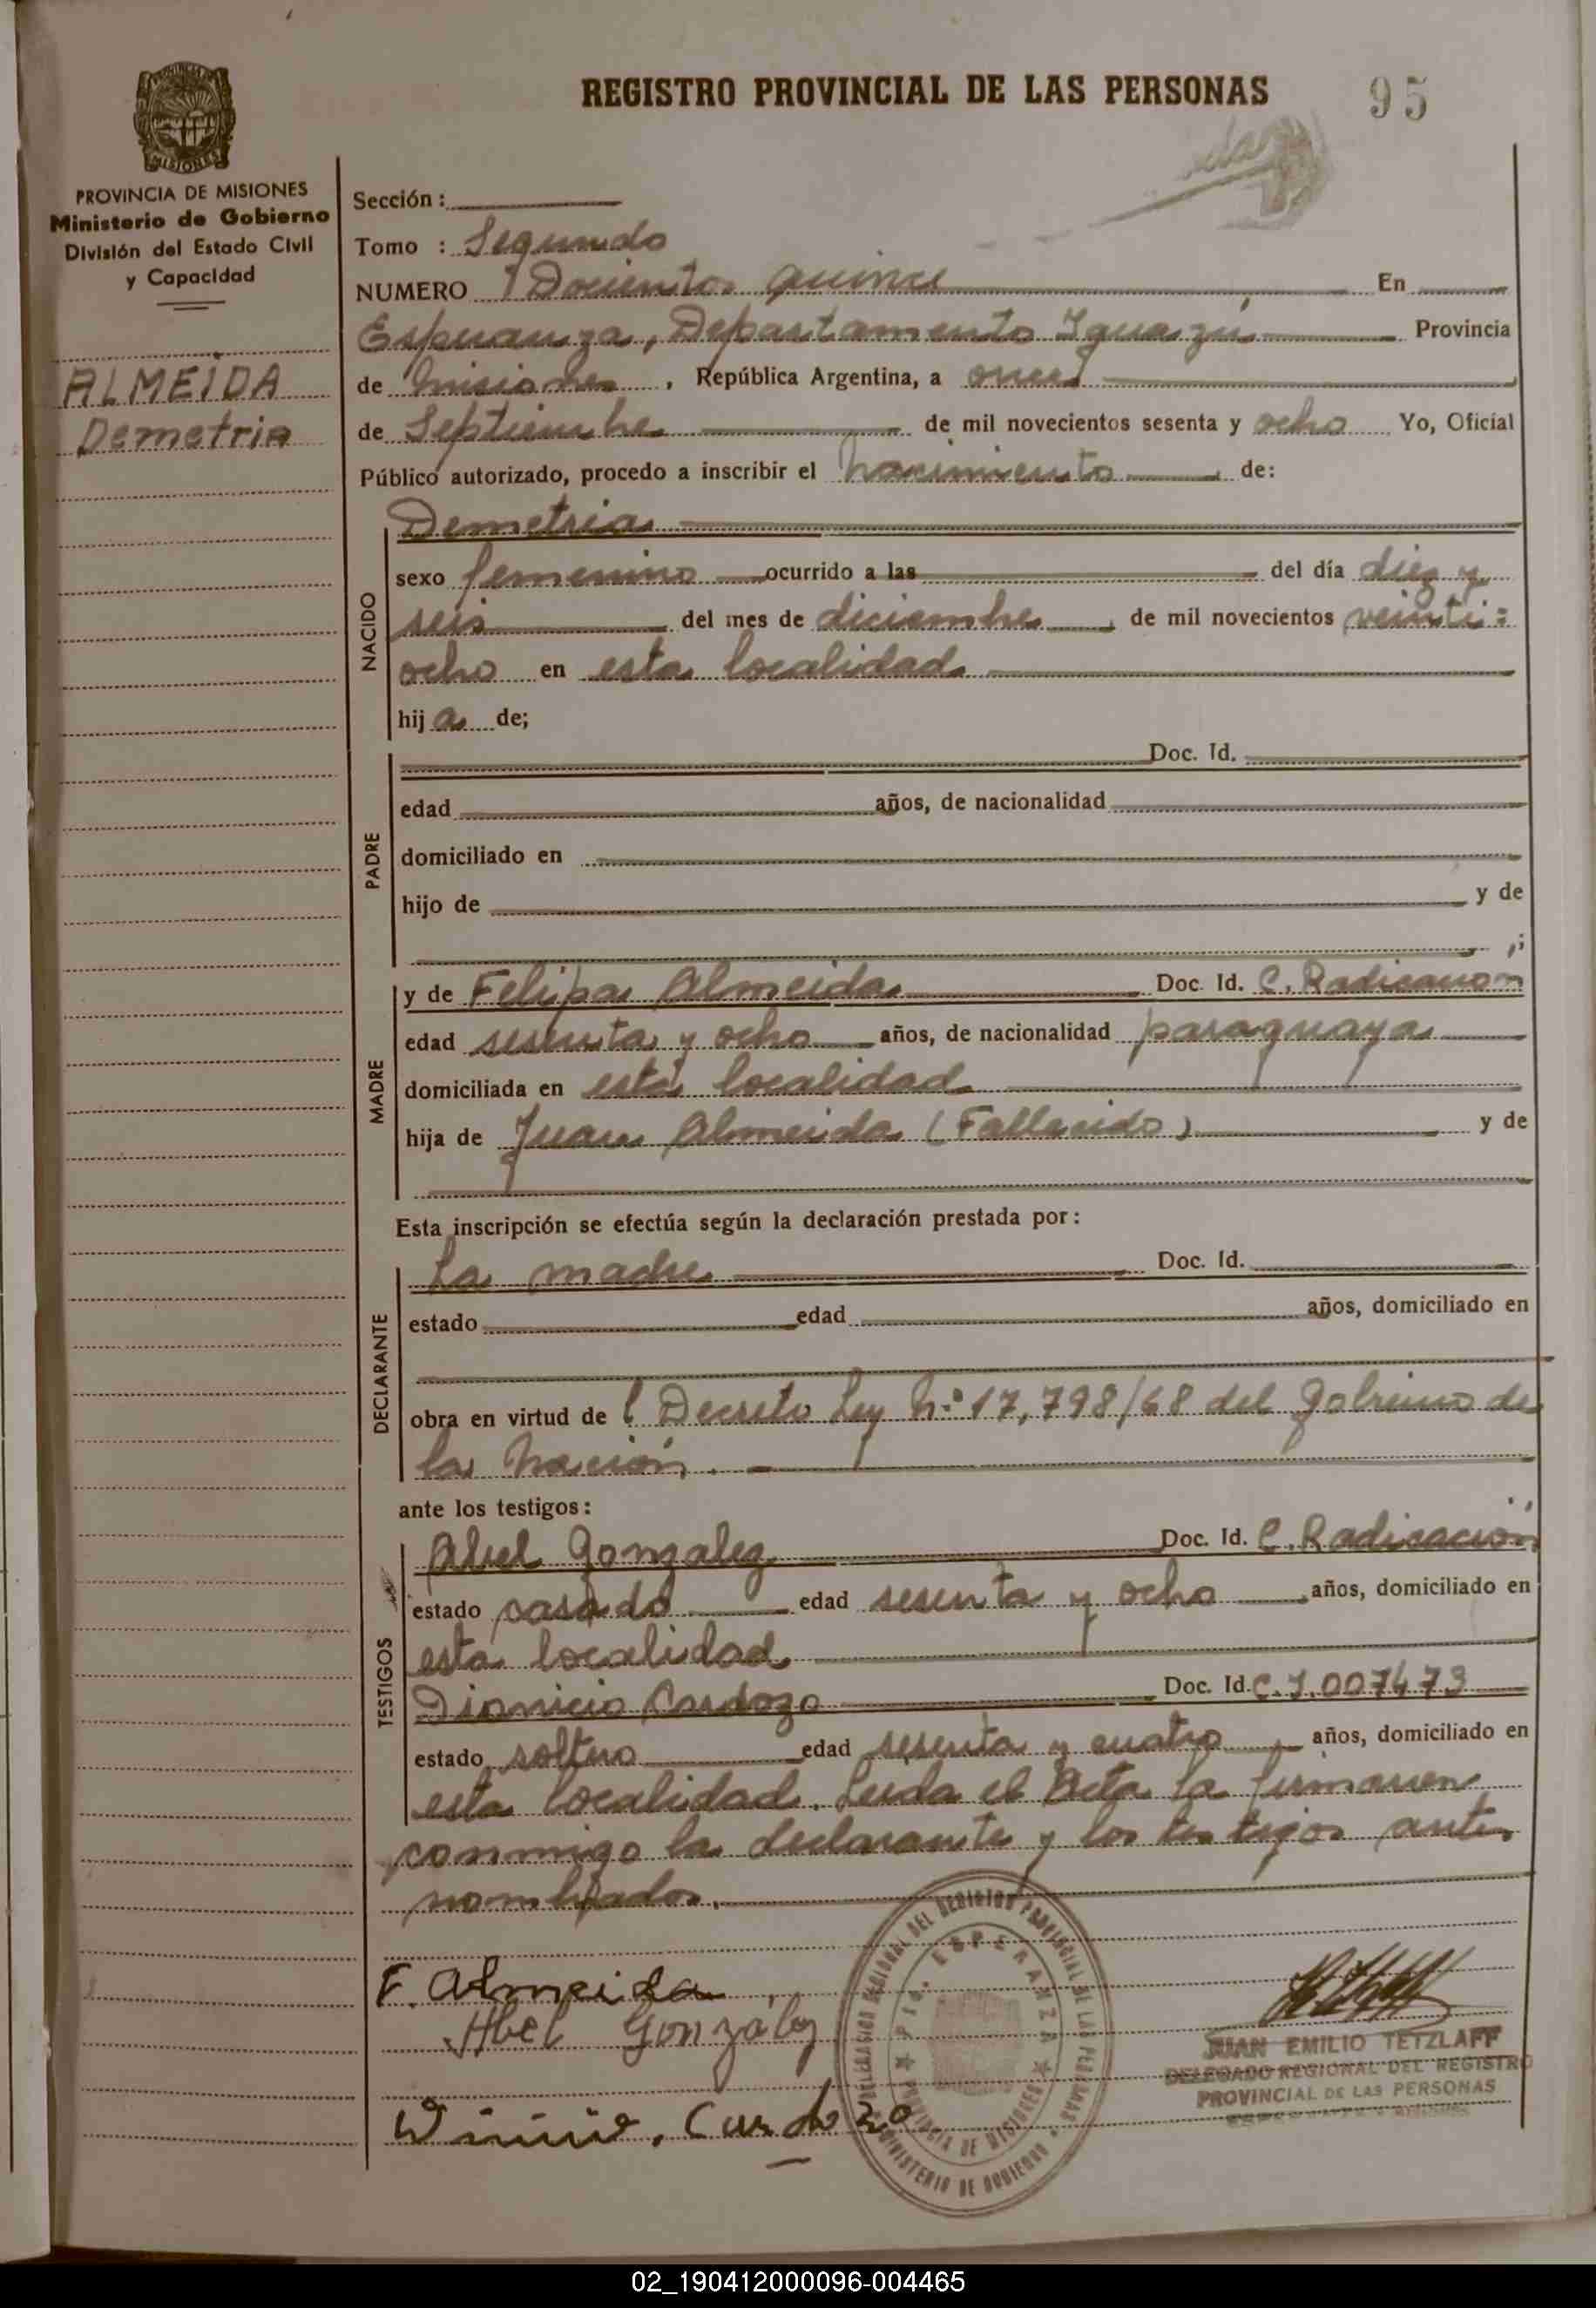 REGISTRO PROVINCIAL DE LAS PERSONAS
95
MISIONES
PROVINCIA DE MISIONES
Ministerio de Gobierno
División del Estado Civil
y Capacidad
ALMEIDA
Demetria
Sección :
Tomo : Segundo
NUMERO Docientos quince En
Esperanza, Departamento Iguazú Provincia
de Misiones, República Argentina, a once
de Septiembre de mil novecientos sesenta y ocho Yo, Oficial
Público autorizado, procedo a inscribir el nacimiento de:
NACIDO
Demetria
sexo femenino ocurrido a las del día diez y
seis del mes de diciembre, de mil novecientos veinti=
ocho en esta localidad
hija de;
PADRE
Doc. Id.
edad años, de nacionalidad
domiciliado en
hijo de y de
;
MADRE
y de Felipa Almeida Doc. Id. C. Radicacion
edad sesenta y ocho años, de nacionalidad paraguaya
domiciliada en esta localidad
hija de Juan Almeida (Fallecido) y de
Esta inscripción se efectúa según la declaración prestada por:
DECLARANTE
La madre Doc. Id.
estado edad años, domiciliado en
obra en virtud de l Decreto Ley Nº 17,798/68 del Gobierno de
la Nación.
ante los testigos:
TESTIGOS
Abel Gonzalez Doc. Id. C. Radicación
estado casado edad sesenta y ocho años, domiciliado en
esta localidad
Dionicio Cardozo Doc. Id. C.I.007473
estado soltero edad sesenta y cuatro años, domiciliado en
esta localidad. Leida el Acta la firmaren
conmigo la declarante y los testigos antes
nombrados.
F. Almeida
Abel González
Cardozo
DELEGACION REGIONAL DEL REGISTRO PROVINCIAL DE LAS PERSONAS
MINISTERIO DE GOBIERNO
ESPERANZA
PROVINCIA DE MISIONES
JUAN EMILIO TETZLAFF
DELEGADO REGIONAL DEL REGISTRO
PROVINCIAL DE LAS PERSONAS
02_190412000096-004465